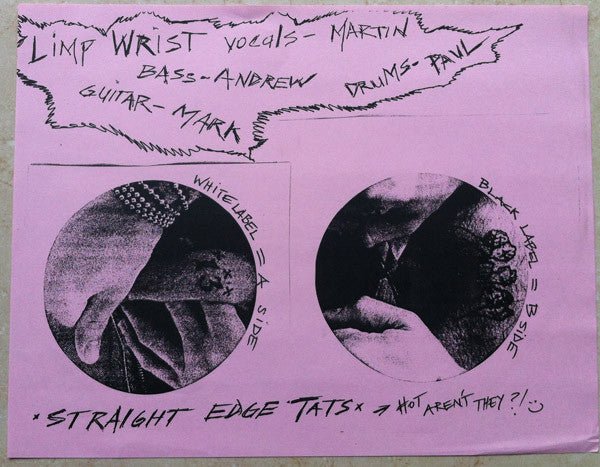 LIMP WRIST VOCALS- MARTIN
BASS-ANDREW DRUMS- PAUL
GUITAR- MARK
WHITE LABEL = A SIDE
BLACK LABEL = B SIDE
XXX
*STRAIGHT EDGE TATS* → HOT AREN'T THEY?! :)